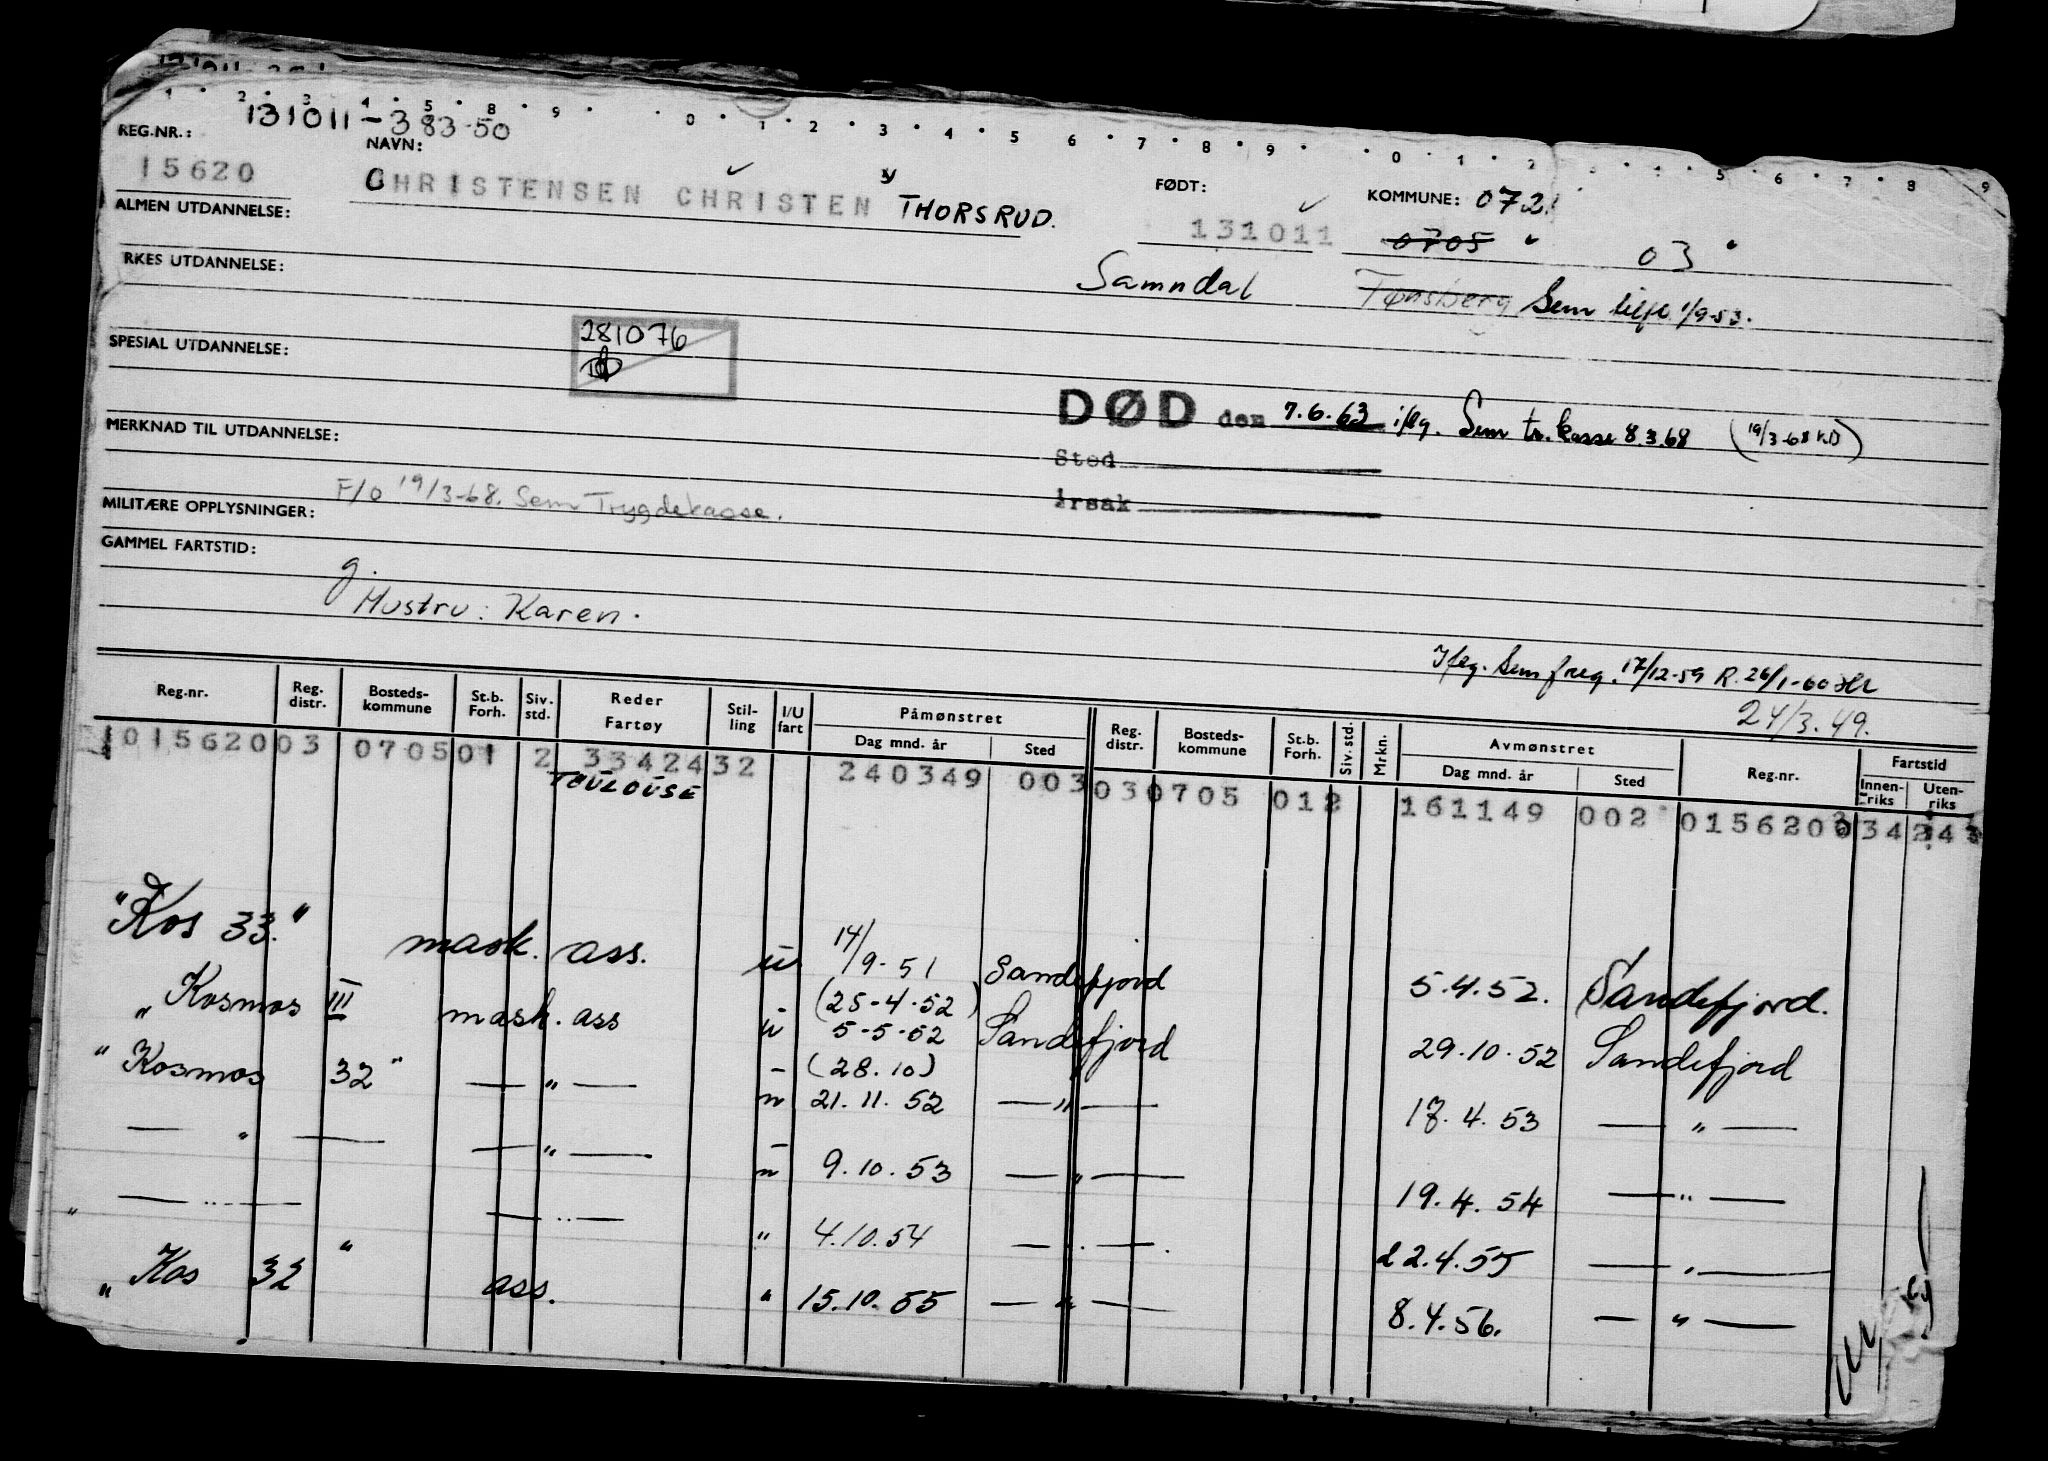 1 2 3 4 5 8 9 0 1 2 3 4 5 6 7 8 9 0 1 2 4 5 6 7 8 9
131011-383-50
REG.NR.: NAVN: FØDT: KOMMUNE: 072
15620 CHRISTENSEN CHRISTEN THORSRUD. 131011 0705 " 03 "
ALMEN UTDANNELSE:
RKES UTDANNELSE:
Samndal Tønsberg Sem 1/9-53.
281076
SPESIAL UTDANNELSE:
DØD den 7.6.63 iflg. Sem tr.kasse 8.3.68 (19/3-68 KD)
MERKNAD TIL UTDANNELSE:
Sted
F/o 19/3-68. Sem Trygdekasse.
MILITÆRE OPPLYSNINGER:
årsak
GAMMEL FARTSTID:
g.
Hustru: Karen.
Iflg. Sem freg. 17/12-59 R. 26/1-60
24/3.49.
Reg.nr. Reg. distr. Bosteds-kommune St.b. Forh. Siv. std. Reder Fartøy Stil-ling I/U fart Påmønstret Dag mnd. år Sted Reg. distr. Bosteds-kommune St.b. Forh. Siv. std. Mrkn. Avmønstret Dag mnd. år Sted Reg.nr. Fartstid Innen-riks Uten-riks
01562003 070501 2 3342432 240349 003 030705 012 161149 002 0156200 34243
TOULOUSE
"Kos 33." mask. ass. u 14/9-51 Sandefjord 5.4.52. Sandefjord.
(25-4-52)
"Kosmos III mask. ass u 5-5-52 Sandefjord 29.10.52 Sandefjord
(28.10)
"Kosmos 32" — " — u 21.11.52 — " — 18.4.53 — " —
— " — — " — u 9.10.53 — " — 19.4.54 — " —
" — " — " — " — " 4.10.54 — " — 22.4.55 — " —
"Kos 32 ass. " 15.10.55 — " — 8.4.56. — " —